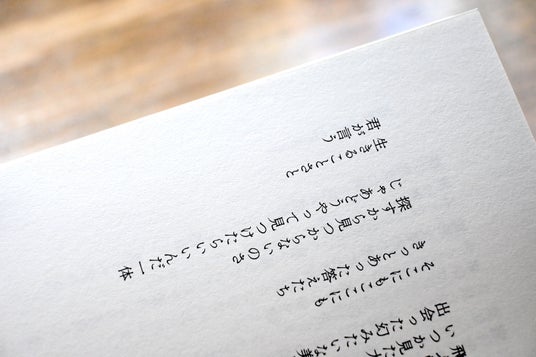 いつか見た
出会った幻みたいな
そこにもここにも
きっとあった答えたち
探すから見つからないのさ
じゃあどうやって見つけたらいいんだ一体
生きることさと
君が言う